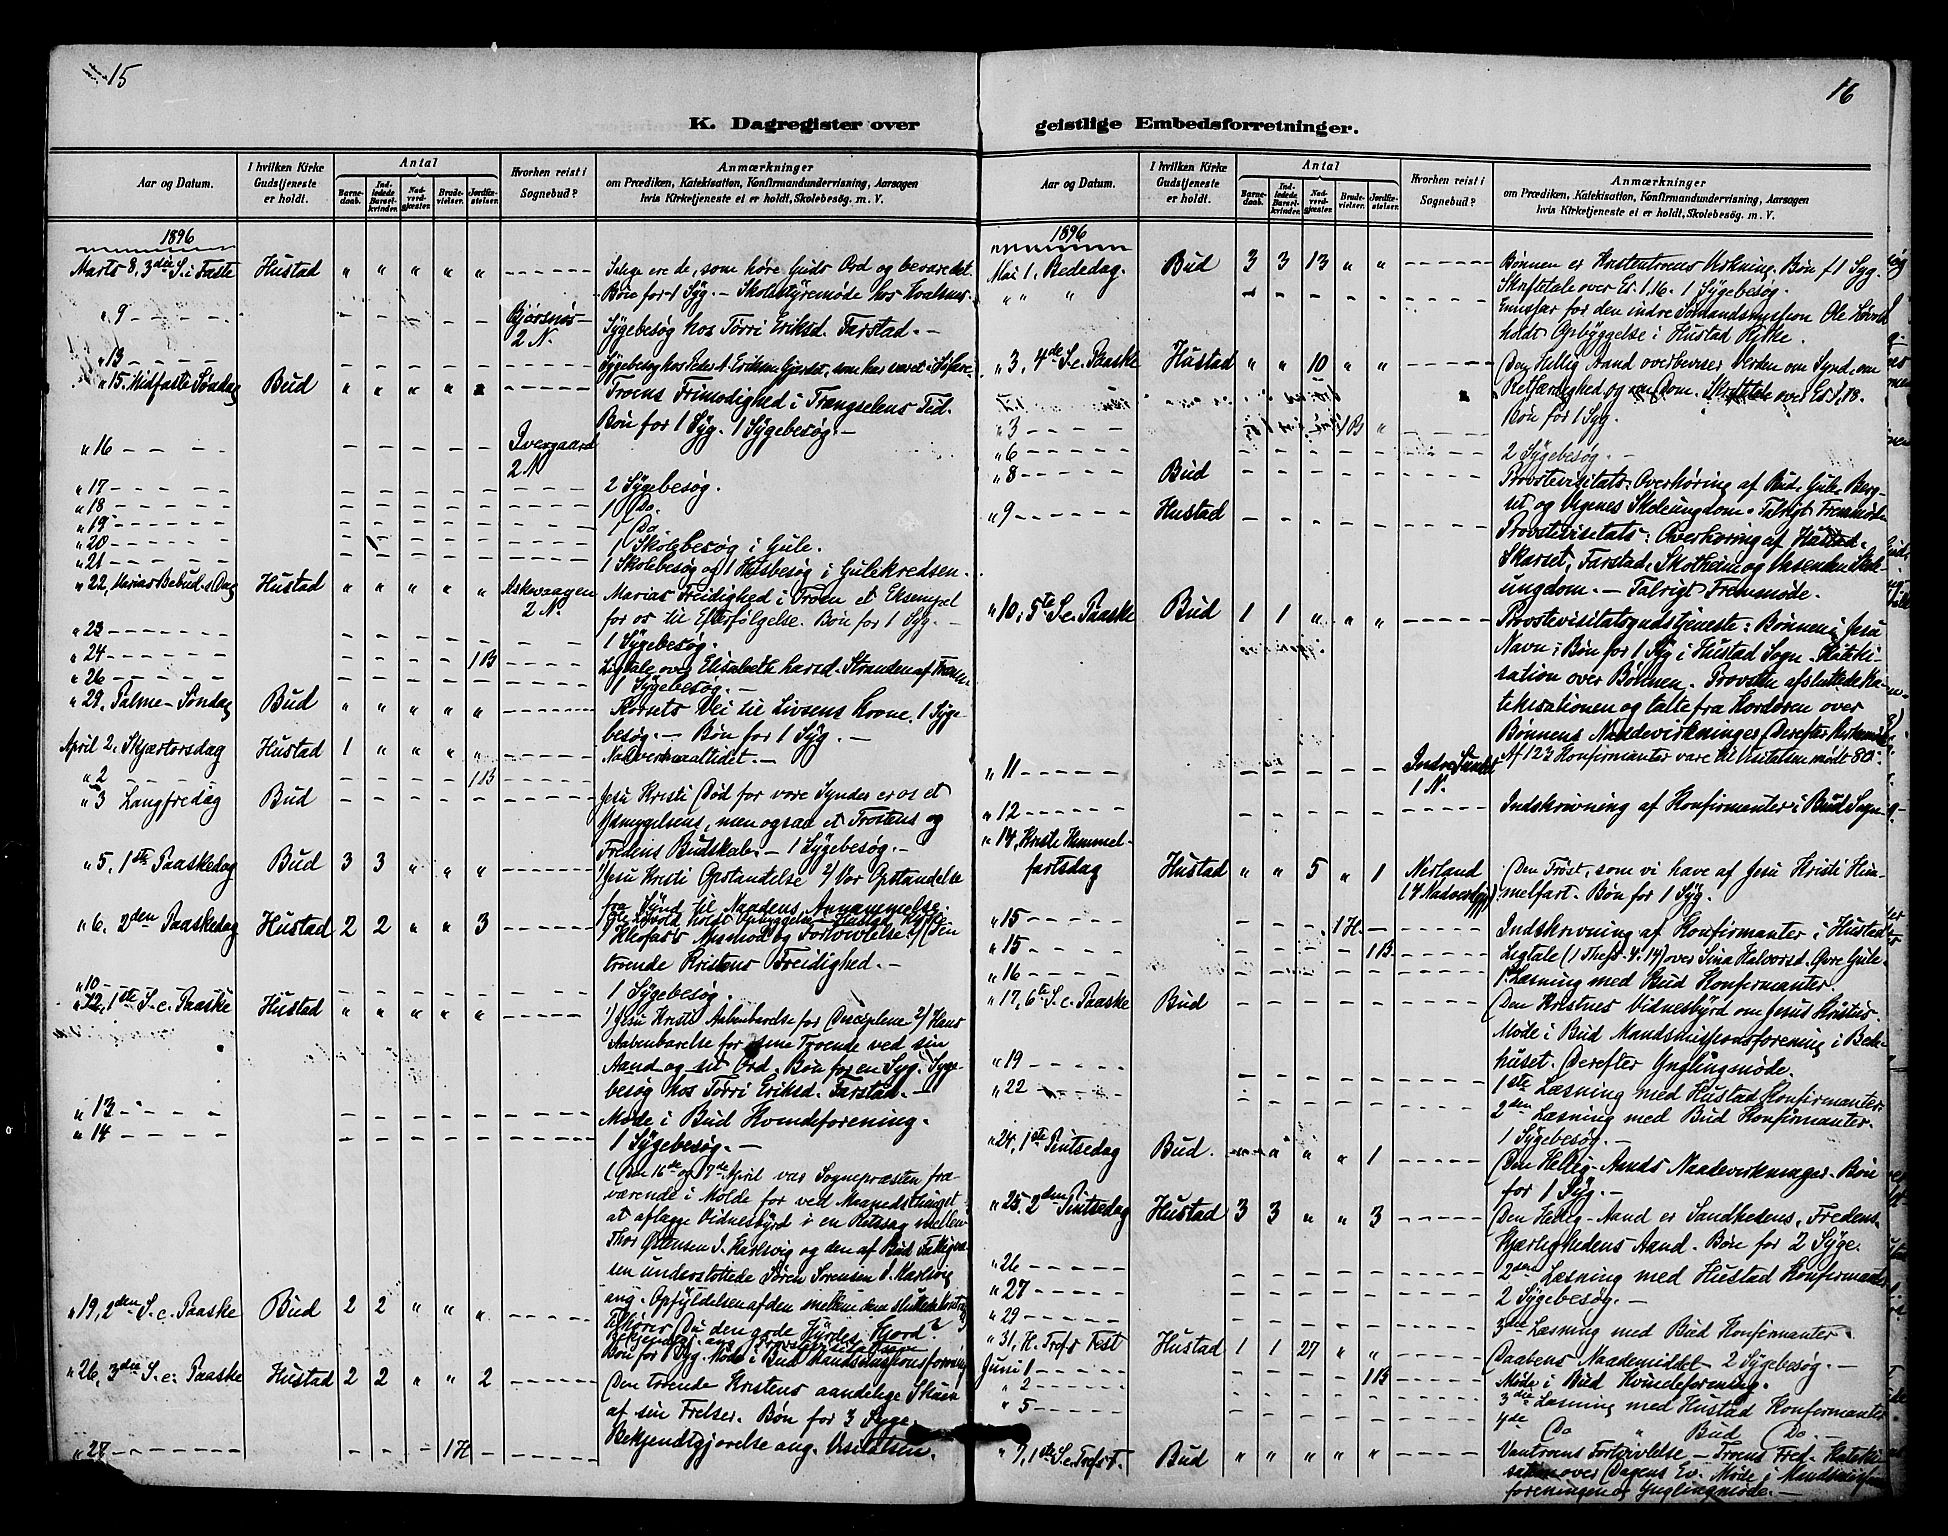 15
K. Dagregister over
Aar og Datum.
I hvilken Kirke Gudstjeneste er holdt.
Antal
Barnedaab.
Indledede Barselkvinder.
Nadverdgjæster.
Brudevielser.
Jordfæstelser.
Hvorhen reist i Sognebud?
Anmærkninger
om Prædiken, Katekisation, Konfirmandundervisning, Aarsagen
hvis Kirketjeneste ei er holdt, Skolebesøg. m. V.
1896
Marts 8, 3die S. i Faste Hustad " " " " " Salige ere de, som høre Guds Ord og bevare det.
Bøn for 1 Syg. - Skolestyremøde hos
" 9 Bjørsnøs 2 N. Sygebesøg hos Tørri Eriksd. Farstad. -
" 13 Sygebesøg hos Peder Eriksen Gjerdet, som har været i
" 15. Midfaste Søndag Bud " " " " Troens Frimodighed i Trængselens Tid.
Bøn for 1 Syg. 1 Sygebesøg. -
" 16 2 N
" 17 2 Sygebesøg.
" 18 1 Do.
" 19 1 Do
" 20 1 Skolebesøg i Gule.
" 21 1 Skolebesøg og 1 Husbesøg i Gulekredsen.
" 22, Marias Bebud. s Dag Hustad " " " " " Askevaagen 2 N. Marias Freidighed i Troen et Eksempel
for os til Efterfølgelse. Bøn for 1 Syg. -
" 23 1 Sygebesøg.
" 24 1 B Ligtale over Elisabeth
" 26 1 Sygebesøg. -
" 29, Palme-Søndag Bud " " " " " Korsets Vei til Livsens Krone. 1 Sygebesøg. - Bøn for 1 Syg. -
April 2. Skjærtorsdag Hustad 1 " " " " Nadvermaaltidet. -
" 2 1 B
" 3 Langfredag Bud Jesu Kristi Død for vore Synder er os et
Ydmygelsens, men ogsaa et Trøstens og
Fredens Budskab. - 1 Sygebesøg. -
" 5, 1ste Paaskedag Bud 3 3 " " " 1/ Jesu Kristi Opstandelse 2/ Vor Opstandelse
fra Synd til Naadens Annammelse.
" 6, 2den Paaskedag Hustad 2 2 " " 3 1/ Kleofas's Mismod og Fortvivlelse 2/ Den
troende Kristens Freidighed. -
" 10 1 Sygebesøg.
" 12, 1ste S. e. Paaske Hustad " " " " " 1/ Jesu Kristi Aabenbarelse for Disciplene 2/ Hans
Aabenbarelse for sine Troende ved sin
Aand og sit Ord. Bøn for en Syg. Sygebesøg hos Tørri Eriksd. Farstad. -
" 13 Møde i Bud Kvindeforening.
" 14 1 Sygebesøg. -
Den 16de og 17de April var Sognepræsten fraværende i Molde for ved Maanedsthinget
at aflægge Vidnesbyrd i en Retssag mellem
og den af Bud
understøttede Søren Sørensen
ang. Opfyldelsen af den mellem dem sluttede
" 19, 2den S. e. Paaske Bud 2 2 " " " Du den gode Hyrdes Hjord?
Bøn for 1 Syg. Møde i Bud Mandsmissionsforening
" 26, 3die S. e. Paaske Hustad 2 2 " " 2 Den troende Kristens aandelige Skuen
af sin Frelser. Bøn for 3 Syge.
" 28 1 H Bekjendtgjørelse ang. Visitatsen.
16
geistlige Embedsforretninger.
Aar og Datum.
I hvilken Kirke Gudstjeneste er holdt.
Antal
Barnedaab.
Indledede Barselkvinder.
Nadverdgjæster.
Brudevielser.
Jordfæstelser.
Hvorhen reist i Sognebud?
Anmærkninger
om Prædiken, Katekisation, Konfirmandundervisning, Aarsagen
hvis Kirketjeneste ei er holdt, Skolebesøg. m. V.
1896
Mai 1. Bededag. Bud 3 3 13 " " Bønnen er Kristentroens Virkning. Bøn f. 1 Syg.
" " " Skriftetale over Es. 1,16. 1 Sygebesøg.
Emissær for den indre Sømandsmission Ole
holdt Opbyggelse i Hustad Kirke.
" 3, 4de S. e. Paaske Hustad " " 10 " " Den Hellig Aand overbeviser Verden om Synd, om
Retfærdighed og om Dom. Skriftetale over Es. 1,18.
Bøn for 1 Syg.
" 3 1 B "
" 6 2 Sygebesøg. -
" 8 Bud Provstevisitats: Overhøring af Bud, Gule, Bergset og Vigenes Skoleungdom. Talrigt Fremmøde.
" 9 Hustad Provstevisitats: Overhøring af Hustad,
Skaret, Farstad, Skotheim og
ungdom. - Talrigt Fremmøde.
" 10, 5te S. e. Paaske Bud 1 1 " " " Provstevisitatsgudstjeneste: Bønnen i Jesu
Navn: Bøn for 1 Syg i Hustad Sogn. Katekisation over Bønnen. Provsten afsluttede Katekisationen og talte fra Kordøren over
Bønnens Naadevirkninger. Derefter
Af 123 Konfirmanter vare til Visitatsen mødt 80.
" 11 Indre 1 N.
" 12 Indskrivning af Konfirmanter i Bud Sogn.
" 14, Kristi Himmelfartsdag Hustad " " 5 " 1 Nerland Den Trøst, som vi have af Jesu Kristi Himmelfart. Bøn for 1 Syg.
" 15 1 H. Indskrivning af Konfirmanter i Hustad
" 15 1 B Ligtale (1 Thess. 4,14) over Sina Halvorsd. Øvre Gule.
" 16 1ste Læsning med Bud Konfirmanter.
" 17, 6te S. e. Paaske Bud Den Kristnes Vidnesbyrd om Jesus Kristus.
Møde i Bud Mandsmissionsforening i Bedehuset. Derefter Ynglingsmøde.
" 19 1ste Læsning med Hustad Konfirmanter.
" 22 2den Læsning med Bud Konfirmanter.
1 Sygebesøg. -
" 24, 1ste Pintsedag Bud. " " " " 1 Den Hellig-Aands Naadevirkninger. Bøn
for 1 Syg. -
" 25. 2den Pintsedag Hustad 3 3 " " 3 Den Hellig-Aand er Sandhedens, Fredens,
Kjærlighedens Aand. Bøn for 2 Syge.
" 26 2den Læsning med Hustad Konfirmanter
" 27 2 Sygebesøg. -
" 29 3die Læsning med Bud Konfirmanter.
" 31, H. Tref. Fest Hustad 1 1 27 " " Daabens Naademiddel. 2 Sygebesøg. -
Juni 1 1 B Møde i Bud Kvindeforening.
" 2 3die Læsning med Hustad Konfirmanter
" 5 4de Do " Bud Do. -
" 7, 1ste S. e. Tref. F. Bud " " " " " Vantroens Fortvivlelse - Troens Fred. Katekisation over Dagens Ev. Møde i Mandsmissionsforeningen og Ynglingmøde. -